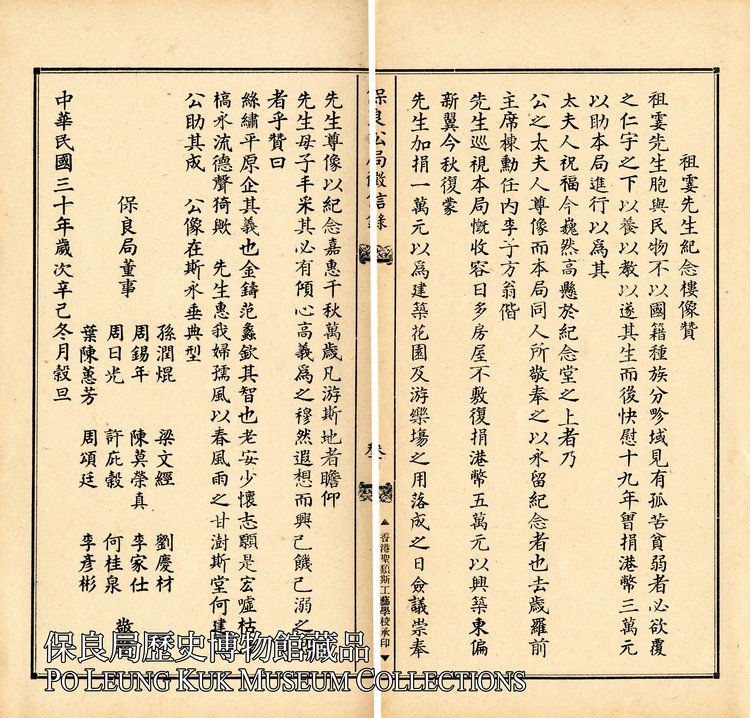 祖雲先生紀念樓像贊
祖雲先生胞與民物不以國籍種族分畛域見有孤苦貧弱者必欲覆
之仁宇之下以養以教以遂其生而後快慰十九年曾捐港幣三萬元
以助本局進行以為其
太夫人祝福今巍然高懸於紀念堂之上者乃
公之太夫人尊像而本局同人所敬奉之以永留紀念者也去歲羅前
主席棟勳任內李子方翁偕
先生巡視本局慨收容日多房屋不敷復捐港幣五萬元以興築東偏
新翼今秋復蒙
先生加捐一萬元以為建築花園及游樂場之用落成之日僉議崇奉
保良公局徵信錄
叁
▲香港聖類斯工藝學校承印▼
先生尊像以紀念嘉惠千秋萬歲凡游斯地者瞻仰
先生母子丰采其必有傾心高義為之穆然遐想而興己饑己溺之
者乎贊曰
絲繡平原企其義也金鑄范蠡欽其智也老安少懷志願是宏噓枯
槁永流德聲猗歟 先生惠我婦孺風以春風雨之甘澍斯堂何建
公助其成 公像在斯永垂典型
保良局董事
孫潤焜 梁文經 劉慶材
周錫年 陳莫榮真 李家仕
周日光 許庇穀 何桂泉
葉陳蕙芳 周頌廷 李彥彬
敬
中華民國三十年歲次辛己冬月穀旦
保良局歷史博物館藏品
PO LEUNG KUK MUSEUM COLLECTIONS